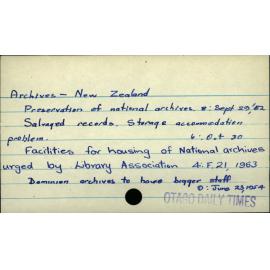 Archives - New Zealand
Preservation of national archives 8: Sept 29, '52
Salvaged records. Storage accommodation
problem. 6: Oct 30
Facilities for housing of National archives
urged by Library Association 4: F. 21, 1963
Dominion archives to have bigger staff
D: June 23, 1954
OTAGO DAILY TIMES